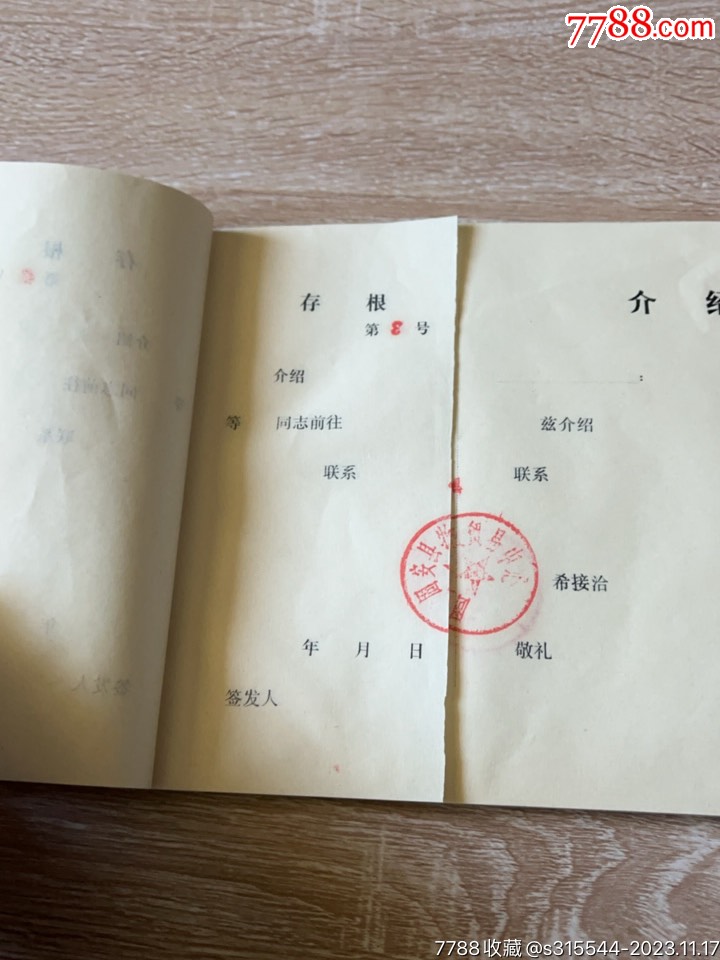 7788.com
存根
第3号
介绍
等 同志前往
联系
年 月 日
签发人
介绍
:
兹介绍
联系
希接洽
敬礼
固安县
7788收藏@s315544-2023.11.17